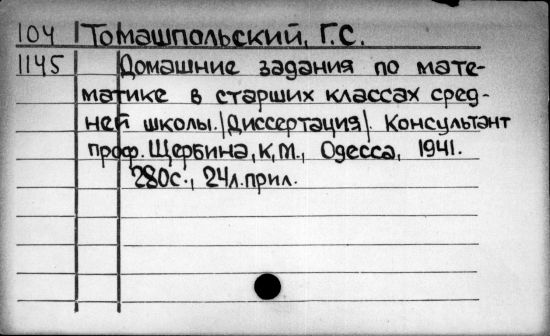 104 Томашпольский, Г.С.
1145 Домашние задания по мате-
матике в старших классах сред-
ней школы. |Диссертация|. Консультант
проф. Щербина, К,М., Одесса, 1941.
280с., 24л.прил.